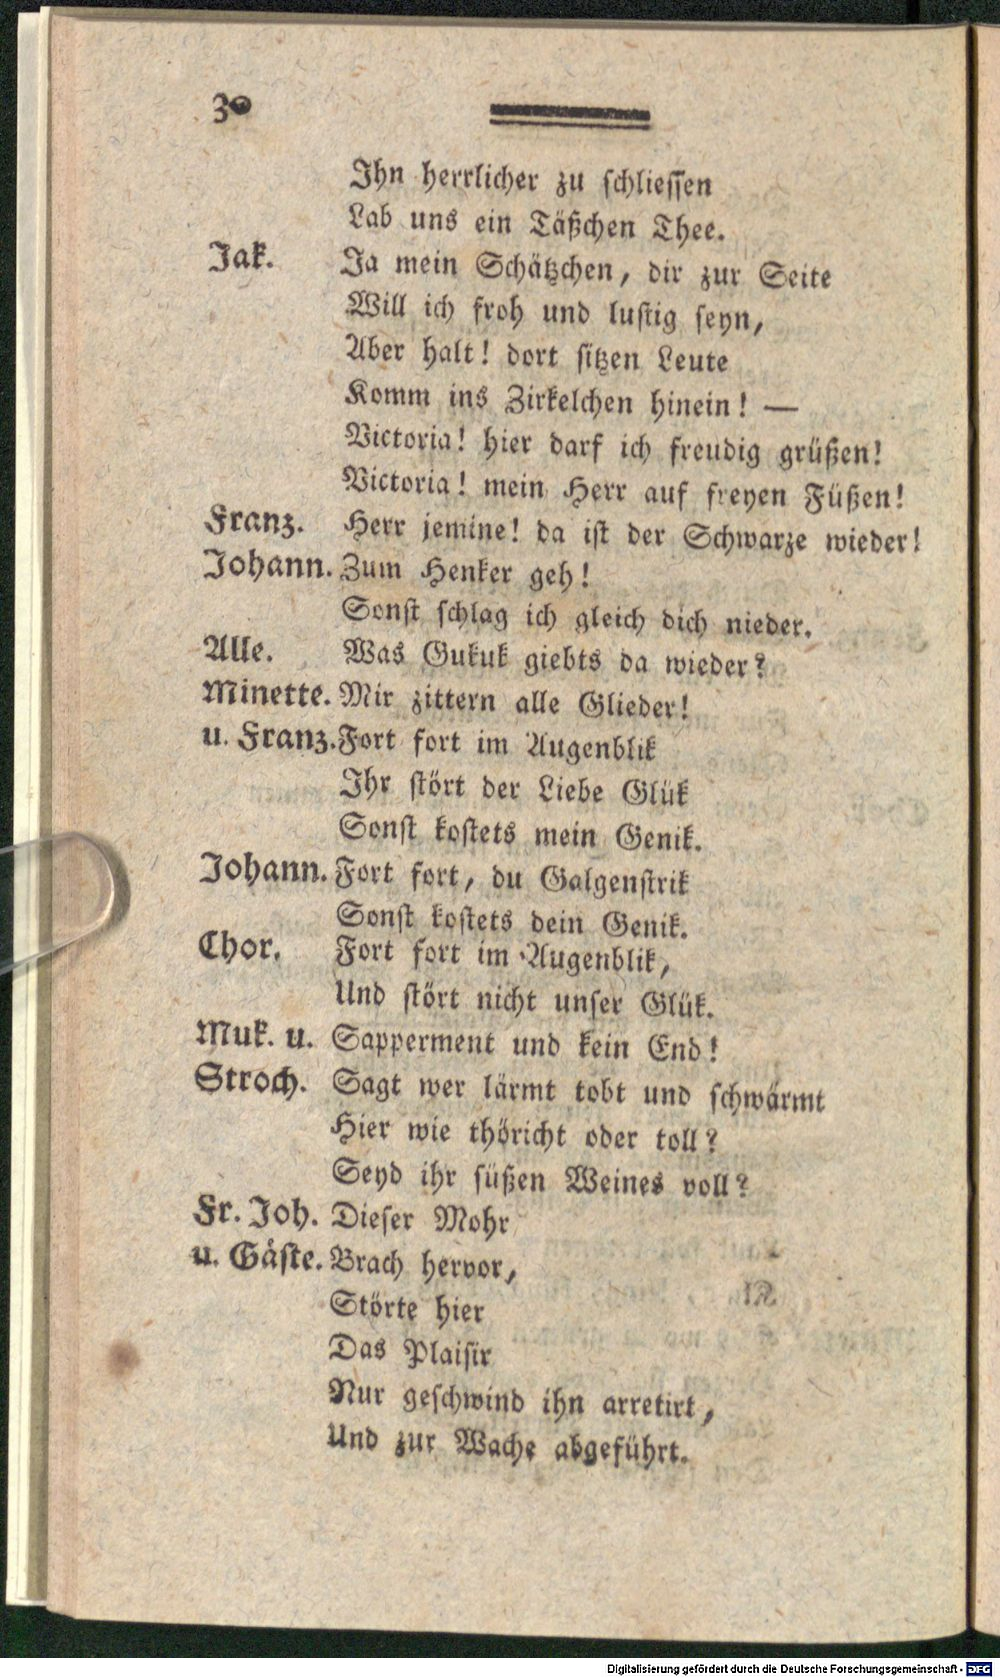 30
Ihn herrlicher zu schliessen
Lab uns ein Täßchen Thee.
Jak. Ja mein Schätzchen, dir zur Seite
Will ich froh und lustig seyn,
Aber halt! dort sitzen Leute
Komm ins Zirkelchen hinein! —
Victoria! hier darf ich freudig grüßen!
Victoria! mein Herr auf freyen Füßen!
Franz. Herr jemine! da ist der Schwarze wieder!
Johann. Zum Henker geh!
Sonst schlag ich gleich dich nieder.
Alle. Was Gukuk giebts da wieder?
Minette. Mir zittern alle Glieder!
u. Franz. Fort fort im Augenblik
Ihr stört der Liebe Glük
Sonst kostets mein Genik.
Johann. Fort fort, du Galgenstrik
Sonst kostets dein Genik.
Chor. Fort fort im Augenblik,
Und stört nicht unser Glük.
Muk. u. Sapperment und kein End!
Stroch. Sagt wer lärmt tobt und schwärmt
Hier wie thöricht oder toll?
Seyd ihr süßen Weines voll?
Fr. Joh. Dieser Mohr
u. Gäste. Brach hervor,
Störte hier
Das Plaisir
Nur geschwind ihn arretirt,
Und zur Wache abgeführt.
Digitalisierung gefördert durch die Deutsche Forschungsgemeinschaft - DFG